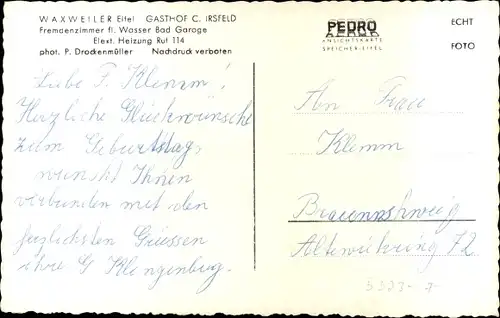 WAXWEILER Eifel GASTHOF C. IRSFELD
Fremdenzimmer fl. Wasser Bad Garage
Elext. Heizung Rut 114
phot. P. Drockenmüller Nachdruck verboten
PEDRO
AEROR
ANSICHTSKARTE
SPEICHER-EIFEL
ECHT
FOTO
Liebe F. Klemm!
Herzliche Glückwunsche
zum Geburtstag,
wünscht Ihnen
verbunden mit den
herzlichsten Grüssen
ihre G Klingenbug.
An Frau
Klemm
Braunnshweig
Altewiekring 72